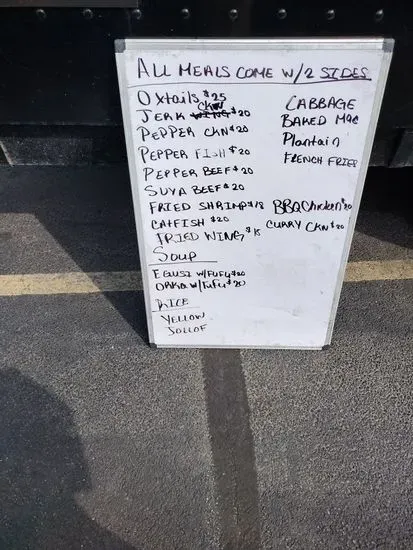 ALL MEALS COME W/2 SIDES
Oxtails $25
JERK CKN $20
PEPPER CKN $20
PEPPER FISH $20
PEPPER BEEF $20
SUYA BEEF $20
FRIED SHRIMP $18
CATFISH $20
FRIED WING $15
CABBAGE
BAKED MAC
Plantain
FRENCH FRIES
BBQ Chicken $20
CURRY CKN $20
SOUP
EGUSI W/FUFU $20
OKRA W/FUFU $20
RICE
YELLOW
JOLLOF